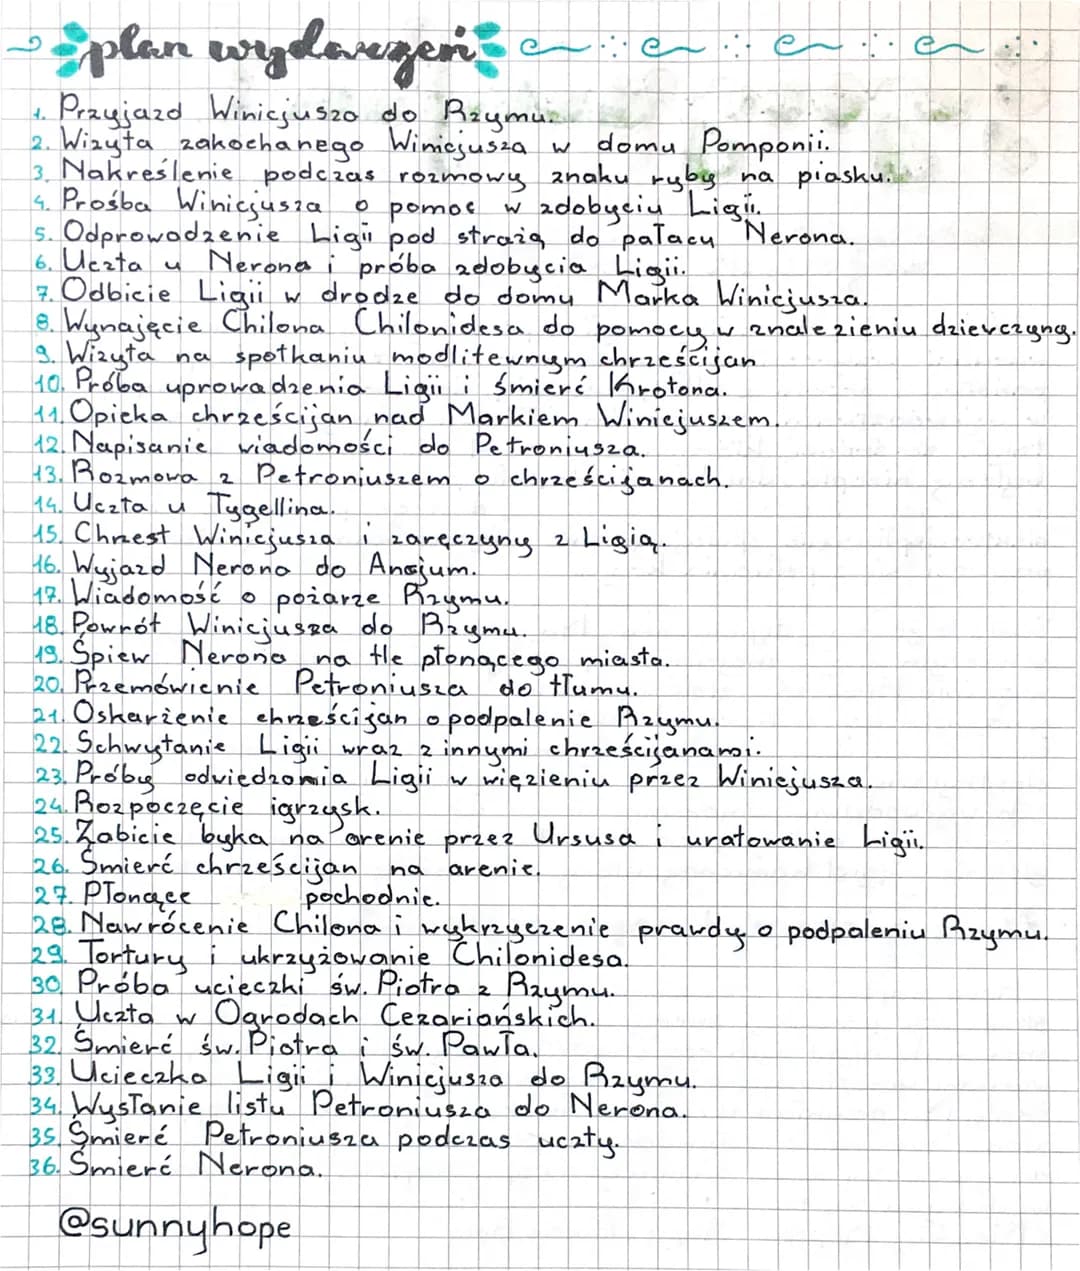 plan wydarzeń
1. Przyjazd Winicjusza do Rzymu.
2. Wizyta zakochanego Winicjusza w domu Pomponii.
3. Nakreślenie podczas rozmowy znaku ryby na piasku.
4. Prośba Winicjusza o pomoc w zdobyciu Ligii.
5. Odprowadzenie Ligii pod strażą do pałacu Nerona.
6. Uczta u Nerona i próba zdobycia Ligii.
7. Odbicie Ligii w drodze do domu Marka Winicjusza.
8. Wynajęcie Chilona Chilonidesa do pomocy w znalezieniu dziewczyny.
9. Wizyta na spotkaniu modlitewnym chrześcijan
10. Próba uprowadzenia Ligii i śmierć Krotona.
11. Opieka chrześcijan nad Markiem Winicjuszem.
12. Napisanie wiadomości do Petroniusza.
13. Rozmowa z Petroniuszem o chrześcijanach.
14. Uczta u Tygellina.
15. Chrzest Winicjusza i zaręczyny z Ligią.
16. Wyjazd Nerona do Ancjum.
17. Wiadomość o pożarze Rzymu.
18. Powrót Winicjusza do Rzymu.
19. Śpiew Nerona na tle płonącego miasta.
20. Przemówienie Petroniusza do tłumu.
21. Oskarżenie chrześcijan o podpalenie Rzymu.
22. Schwytanie Ligii wraz z innymi chrześcijanami.
23. Próby odwiedzenia Ligii w więzieniu przez Winicjusza.
24. Rozpoczęcie igrzysk.
25. Zabicie byka na arenie przez Ursusa i uratowanie Ligii.
26. Śmierć chrześcijan na arenie.
27. Płonące pochodnie.
28. Nawrócenie Chilona i wykrzyczenie prawdy o podpaleniu Rzymu.
29. Tortury i ukrzyżowanie Chilonidesa.
30. Próba ucieczki św. Piotra z Rzymu.
31. Uczta w Ogrodach Cezariańskich.
32. Śmierć św. Piotra i św. Pawła.
33. Ucieczka Ligii i Winicjusza do Rzymu.
34. Wysłanie listu Petroniusza do Nerona.
35. Śmierć Petroniusza podczas uczty.
36. Śmierć Nerona.
@sunnyhope